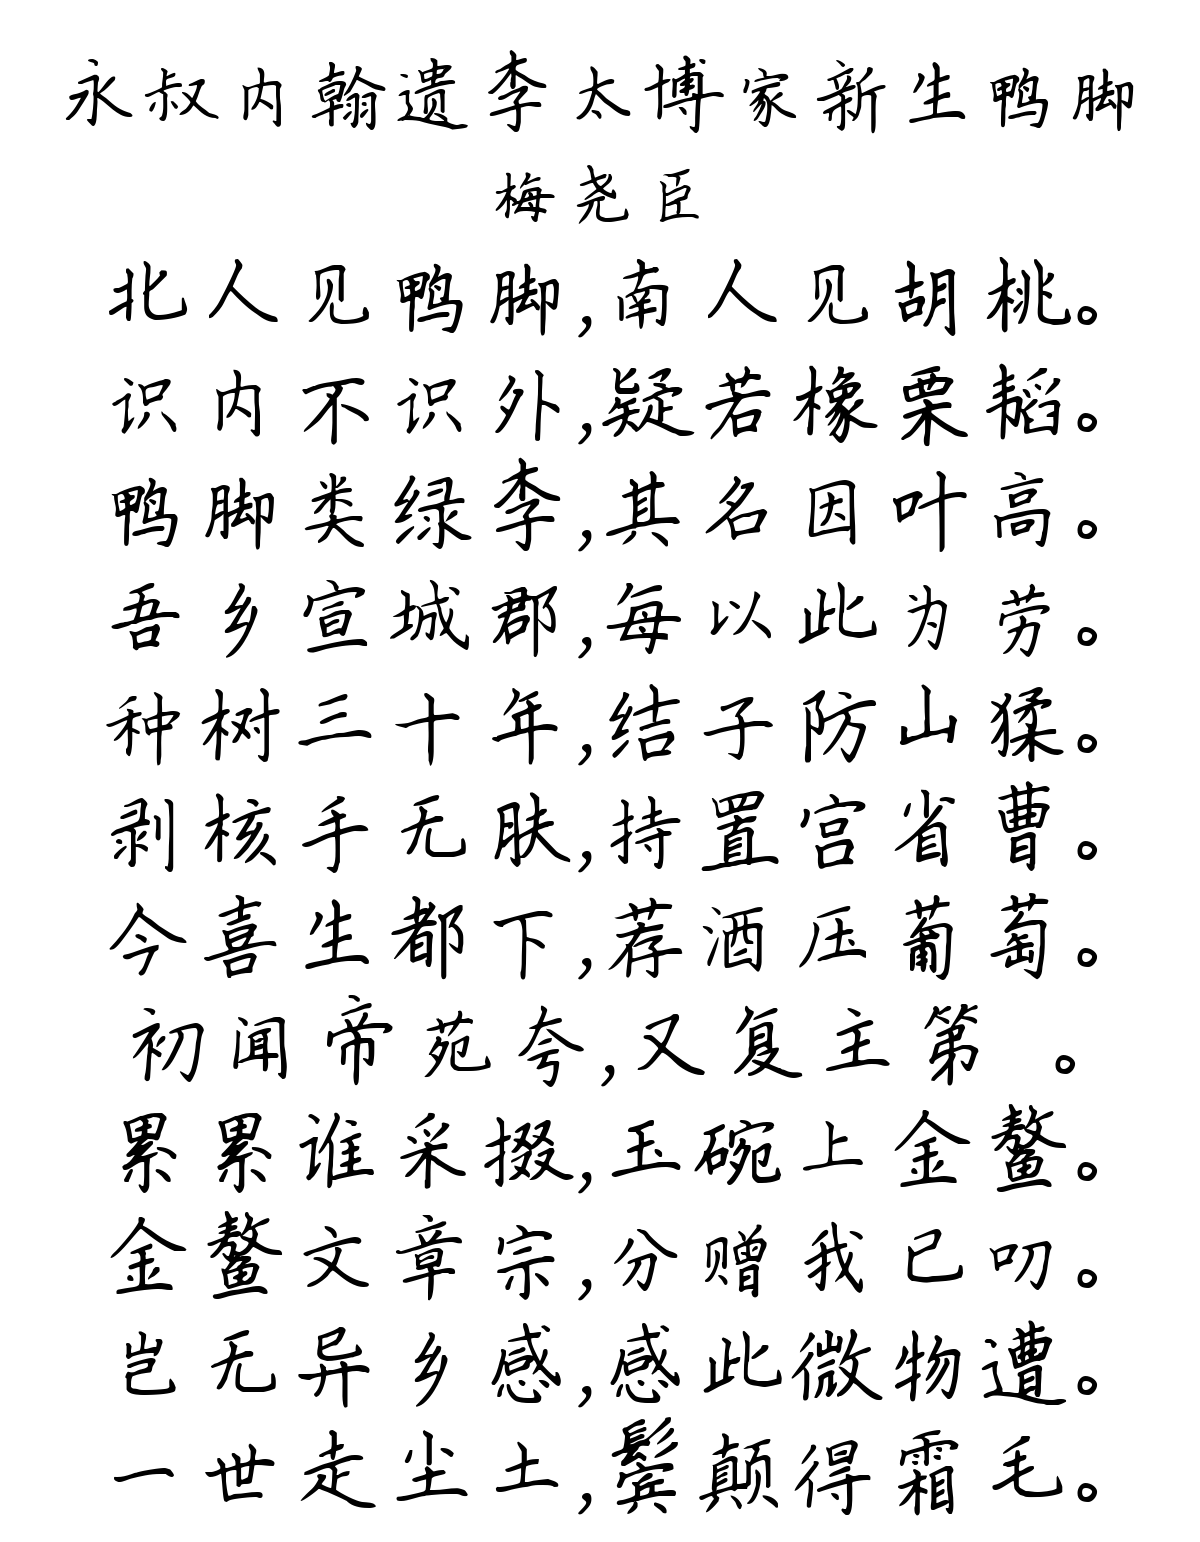 永叔内翰遗李太博家新生鸭脚
梅尧臣
北人见鸭脚,南人见胡桃。
识内不识外,疑若橡栗韬。
鸭脚类绿李,其名因叶高。
吾乡宣城郡,每以此为劳。
种树三十年,结子防山猱。
剥核手无肤,持置宫省曹。
今喜生都下,荐酒压葡萄。
初闻帝苑夸,又复主第 。
累累谁采掇,玉碗上金鳌。
金鳌文章宗,分赠我已叨。
岂无异乡感,感此微物遭。
一世走尘土,鬓颠得霜毛。